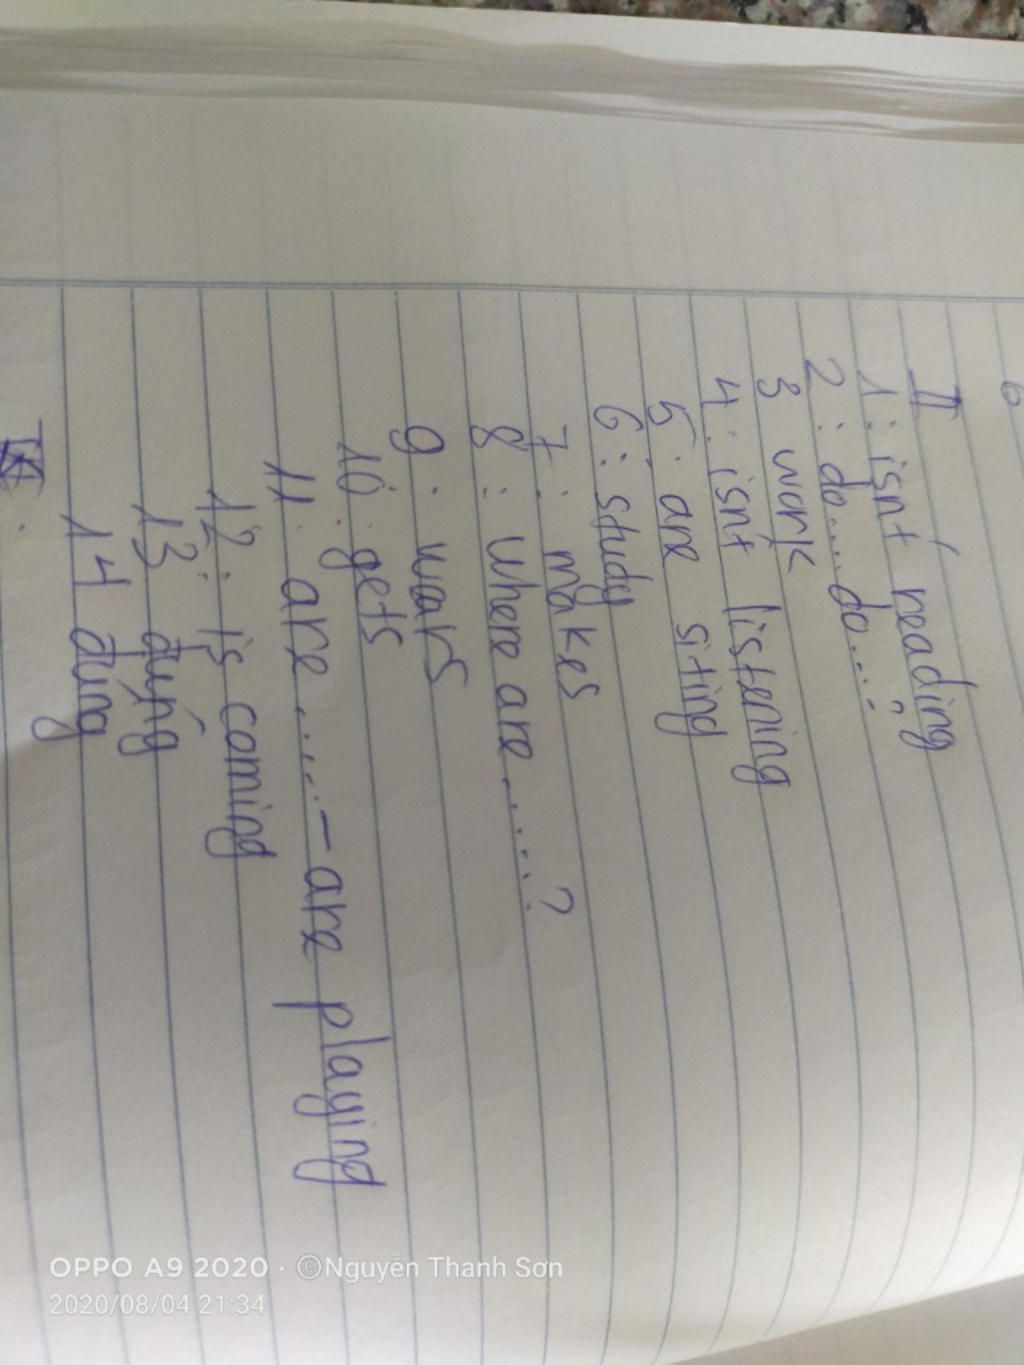 II
1: isnt reading
2: do....do...?
3 work
4: isnt listening
5: are siting
6: study
7: makes
8: where are.....?
9. wars
10. gets
11. are.....-are playing
12: is coming
13 đúng
14 đúng
OPPO A9 2020 · ©Nguyễn Thanh Sơn
2020/08/04 21:34